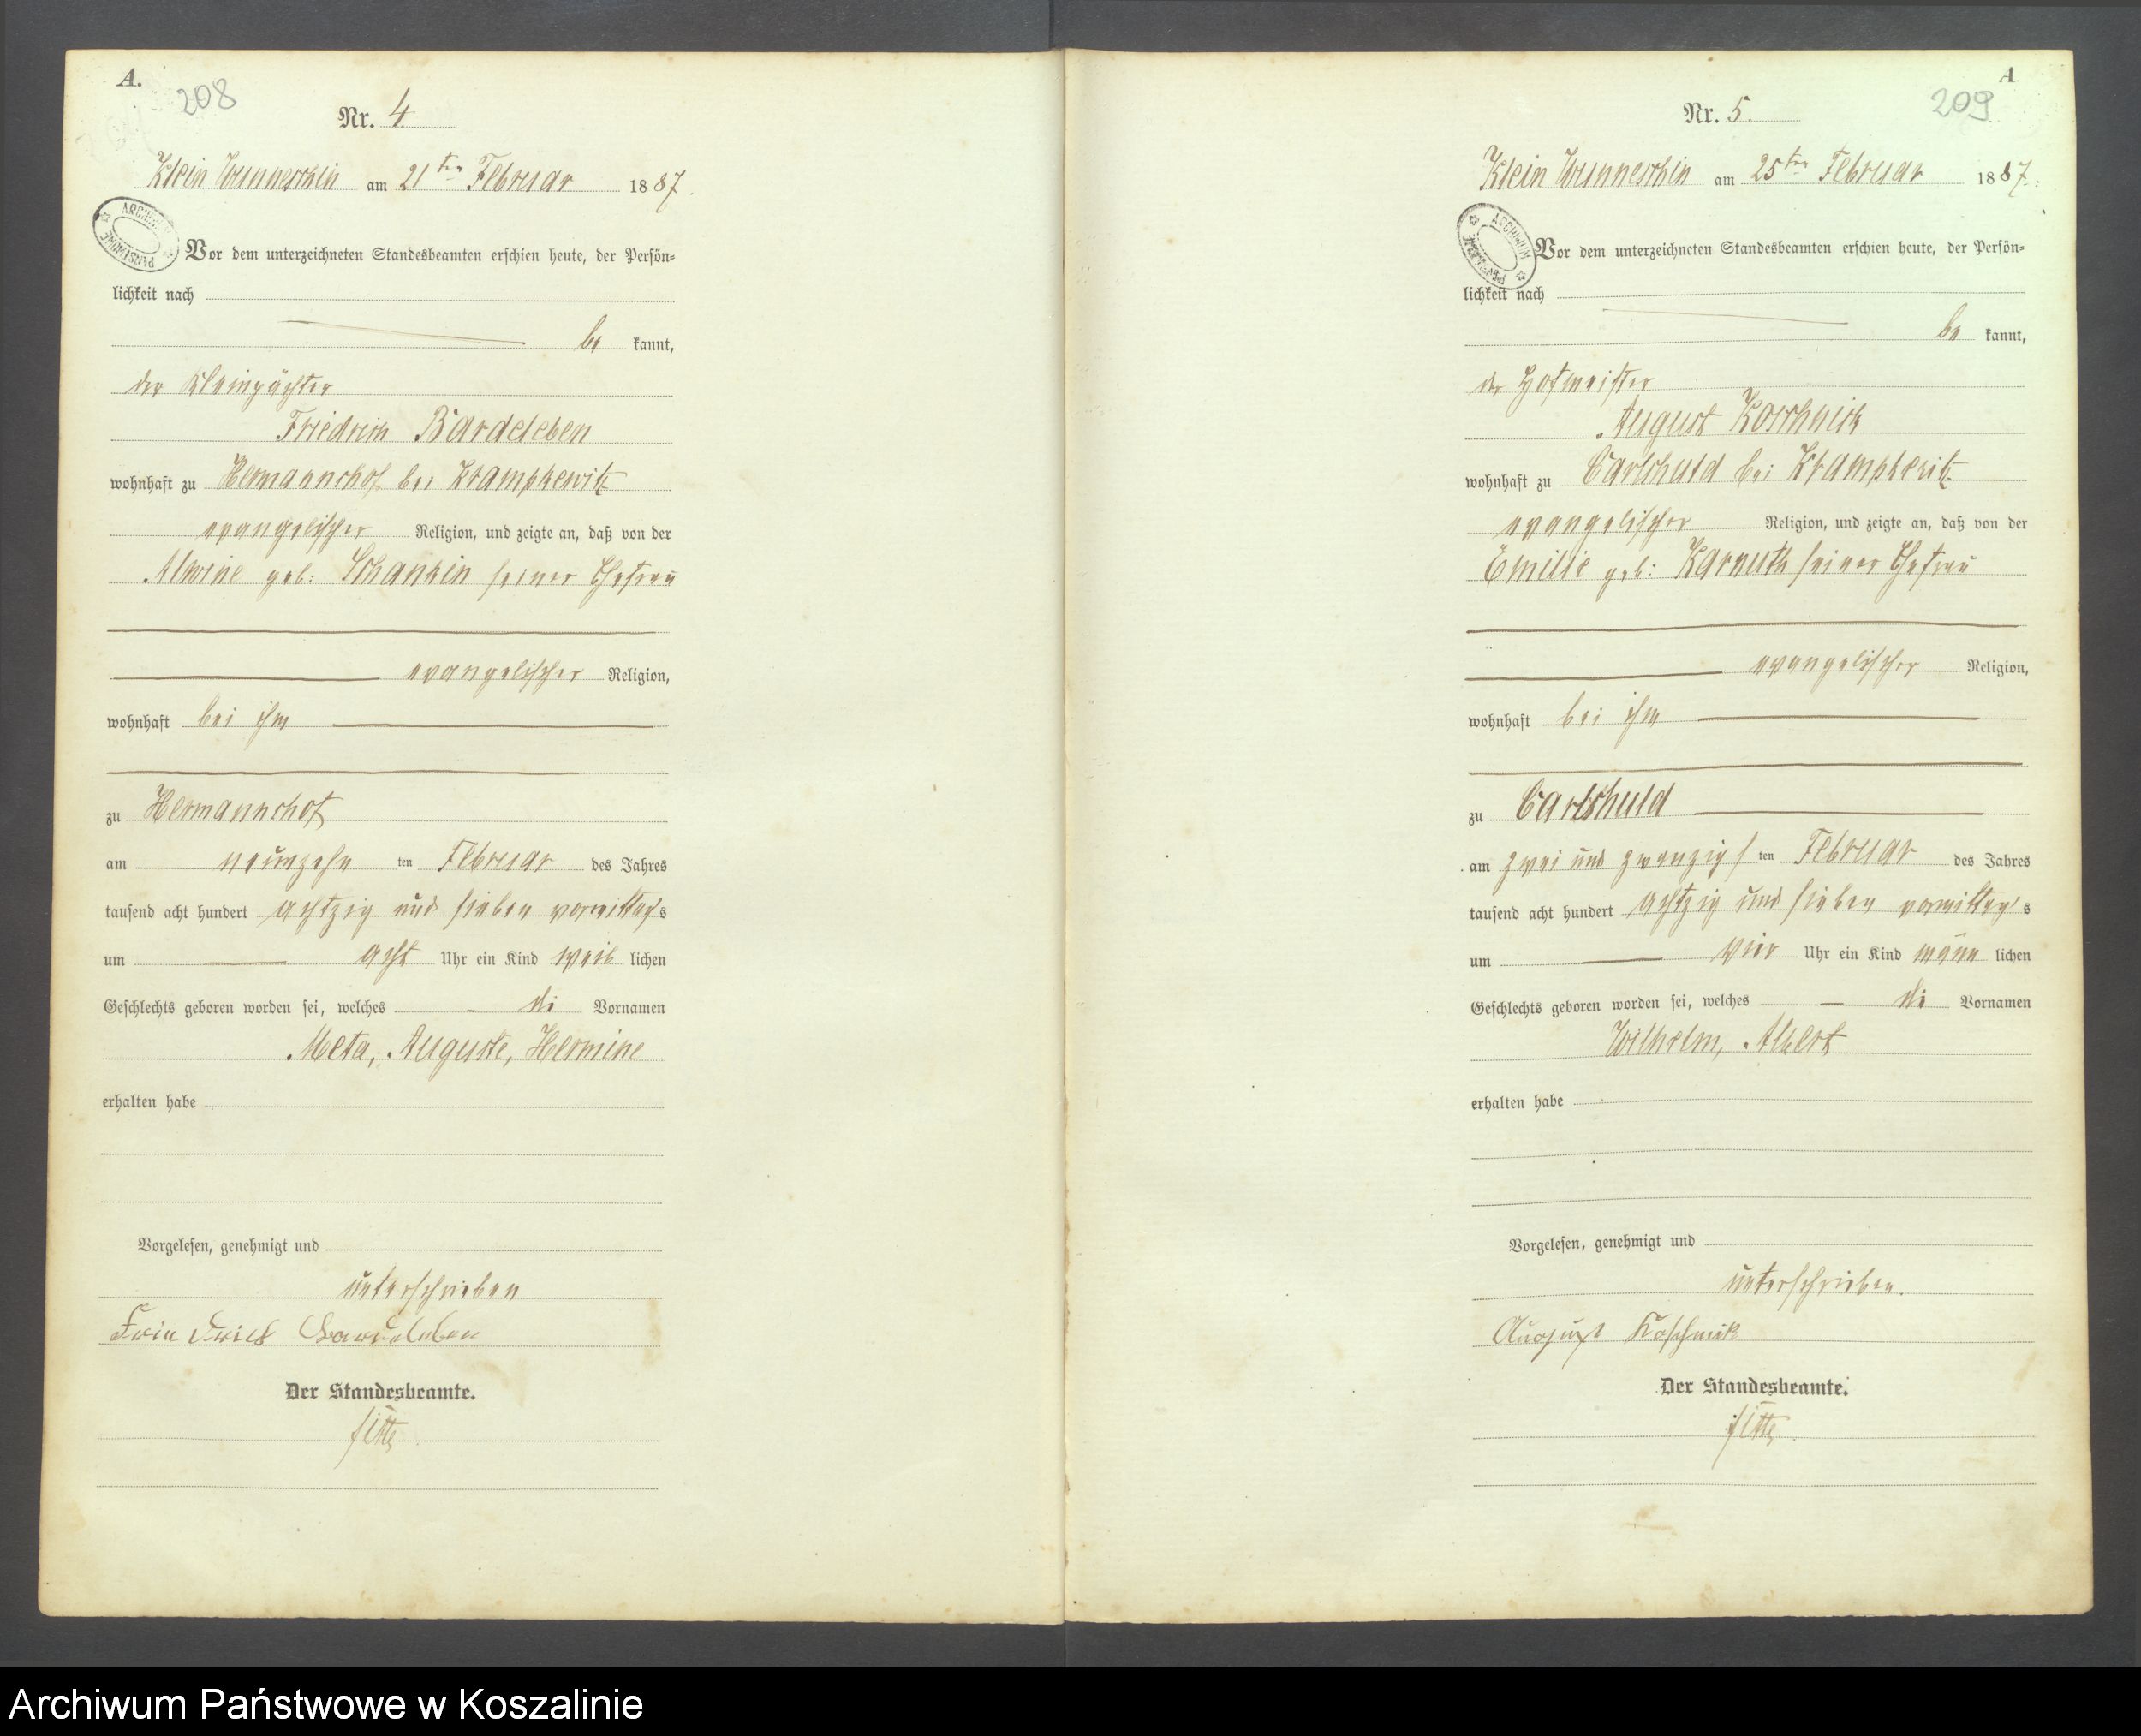 A.
208
Nr. 4
Klein Wunneschin am 21ten Februar 1887.
ARCHIWUM PAŃSTWOWE
Vor dem unterzeichneten Standesbeamten erschien heute, der Persön-
lichkeit nach
be kannt,
der Kleinpächter
Friedrich Bardeleben
wohnhaft zu Hermannshof bei Krampkewitz
evangelischer Religion, und zeigte an, daß von der
Alwine geb: Schankin seiner Ehefrau
evangelischer Religion,
wohnhaft bei ihm
zu Hermannshof
am neunzehn ten Februar des Jahres
tausend acht hundert achtzig und sieben vormittags
um acht Uhr ein Kind weib lichen
Geschlechts geboren worden sei, welches die Vornamen
Meta, Auguste, Hermine
erhalten habe
Vorgelesen, genehmigt und
unterschrieben
Friedrich Bardeleben
Der Standesbeamte.
A
209
Nr. 5.
Klein Wunneschin am 25ten Februar 1887.
ARCHIWUM PAŃSTWOWE
Vor dem unterzeichneten Standesbeamten erschien heute, der Persön-
lichkeit nach
be kannt,
der Hofmeister
August Koschnick
wohnhaft zu Carlshuld bei Krampkewitz
evangelischer Religion, und zeigte an, daß von der
Emilie geb: Karnuth seiner Ehefrau
evangelischer Religion,
wohnhaft bei ihm
zu Carlshuld
am zwei und zwanzigsten Februar des Jahres
tausend acht hundert achtzig und sieben vormittags
um vier Uhr ein Kind männ lichen
Geschlechts geboren worden sei, welches die Vornamen
Wilhelm, Albert
erhalten habe
Vorgelesen, genehmigt und
unterschrieben.
August Koschnik
Der Standesbeamte.
Archiwum Państwowe w Koszalinie